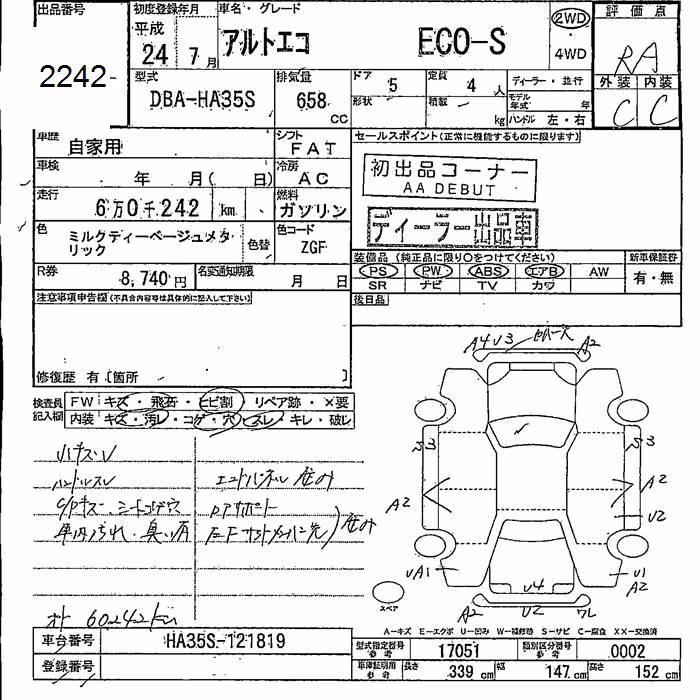 出品番号 初度登録年月 車名・グレード 2WD 評価点
2242- 平成 24 7月 アルトエコ ECO-S 4WD RA
型式 DBA-HA35S 排気量 658 CC ドア 5 定員 4 人 ディーラー・並行 外装 内装
形状 積載 kg モデル年式 年 ハンドル 左・右 C C
車歴 自家用 シフト FAT セールスポイント(正常に機能するものに限ります)
車検 年 月( 日) 冷房 AC 初出品コーナー
AA DEBUT
走行 6万0千242 km 燃料 ガソリン ディーラー出品車
色 ミルクティーベージュメタリック 色替 色コード ZGF 装備品(純正品に限り○をつけてください) 新車保証書
PS PW ABS エアB AW 有・無
SR ナビ TV カワ
R券 8,740円 名変通知期限 月 日 後日品
注意事項申告欄(不具合内容等は具体的に記入して下さい)
A4 U3 A2
修復歴 有〔箇所 〕
検査員記入欄 FW キズ・飛石・ヒビ割 リペア跡・×要
内装 キズ・汚レ・コゲ・穴・スレ・キレ・破レ
ハンドルスレ エンドパネル
車内汚れ・臭い有
A2 A2
U2
UA1 U4 U1
A2
スペア A2 U2 ワレ
オト 60242km
A-キズ E-エクボ U-凹み W-補修跡 S-サビ C-腐食 XX-交換済
車台番号 HA35S-121819 型式指定番号 参考 17051 類別区分番号 参考 0002
登録番号 車庫証明用 参考 長さ 339 cm 幅 147 cm 高さ 152 cm